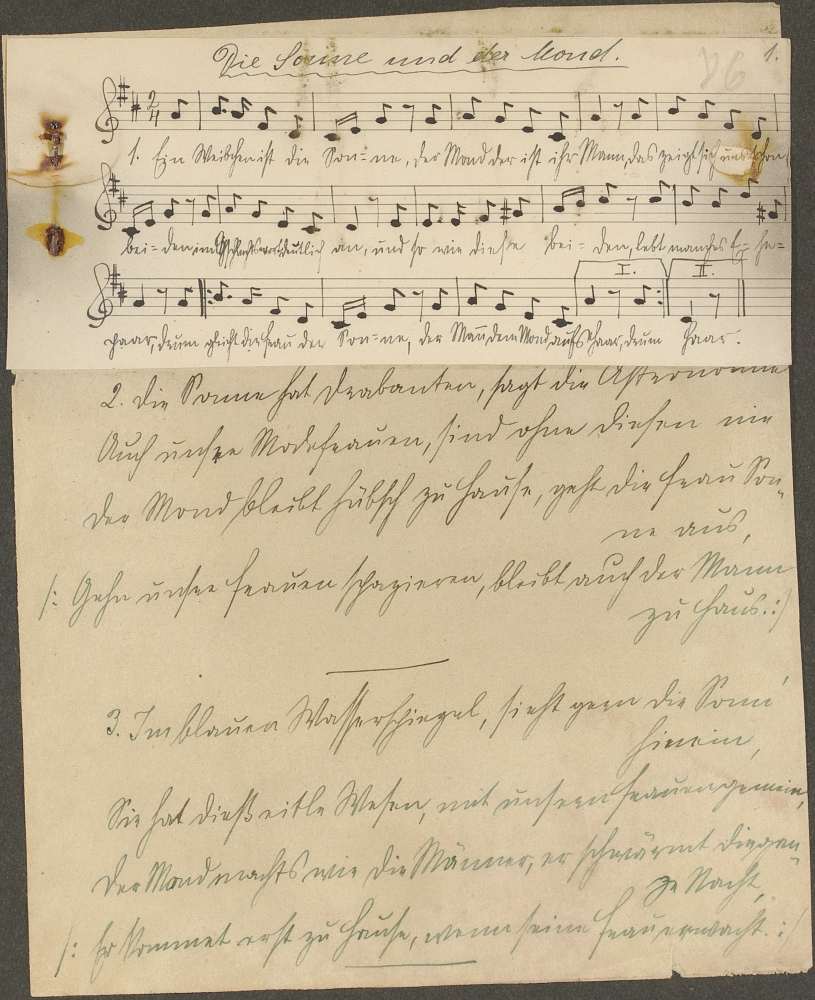 Die Sonne und der Mond.
1.
1. Ein Weibchen ist die Son=ne, der Mond der ist ihr Mann, das zeigt sich uns schon
bei=den im Geschlechtswort deutlich an, und so wie diese bei=den, lebt manches E=he=
paar, drum gleicht die Frau der Son=ne, der Mann dem Mond aufs Haar, drum Haar.
I. II.
2. Die Sonne hat Drabanten, sagt die Astronomie
Auch unsre Modefrauen, sind ohne diesen nie
Der Mond bleibt hübsch zu Hause, geht die Frau Son„
ne aus,
/: Gehn unsre Frauen spazieren, bleibt auch der Mann
zu Haus. :/
3. Im blauen Wasserspiegel, sieht gern die Sonn'
hinein,
Sie hat dieß eitle Wesen, mit unsern Frauen gemein,
Der Mond machts wie die Männer, er schwärmt die gan„
ze Nacht,
/: Er kommet erst zu Hause, wenn seine Frau erwacht. :/